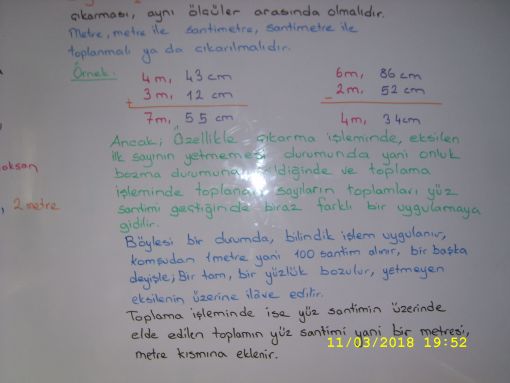 çıkarması, aynı ölçüler arasında olmalıdır.
Metre, metre ile santimetre, santimetre ile
toplanmalı ya da çıkarılmalıdır.
Örnek:
4m, 43 cm
3m, 12 cm
+
7m, 55 cm
6m, 86 cm
2m, 52 cm
-
4m, 34cm
Ancak; Özellikle çıkarma işleminde, eksilen
ilk sayının yetmemesi durumunda yani onluk
bozma durumuna ve toplama
işleminde toplanan sayıların toplamları yüz
santimi geçtiğinde biraz farklı bir uygulamaya
gidilir.
oksan
, 2 metre
Böylesi bir durumda, bilindik işlem uygulanır,
komşudan 1metre yani 100 santim alınır, bir başka
deyişle; Bir tam, bir yüzlük bozulur, yetmeyen
eksilenin üzerine ilâve edilir.
Toplama işleminde ise yüz santimin üzerinde
elde edilen toplamın yüz santimi yani bir metresi,
metre kısmına eklenir.
11/03/2018 19:52